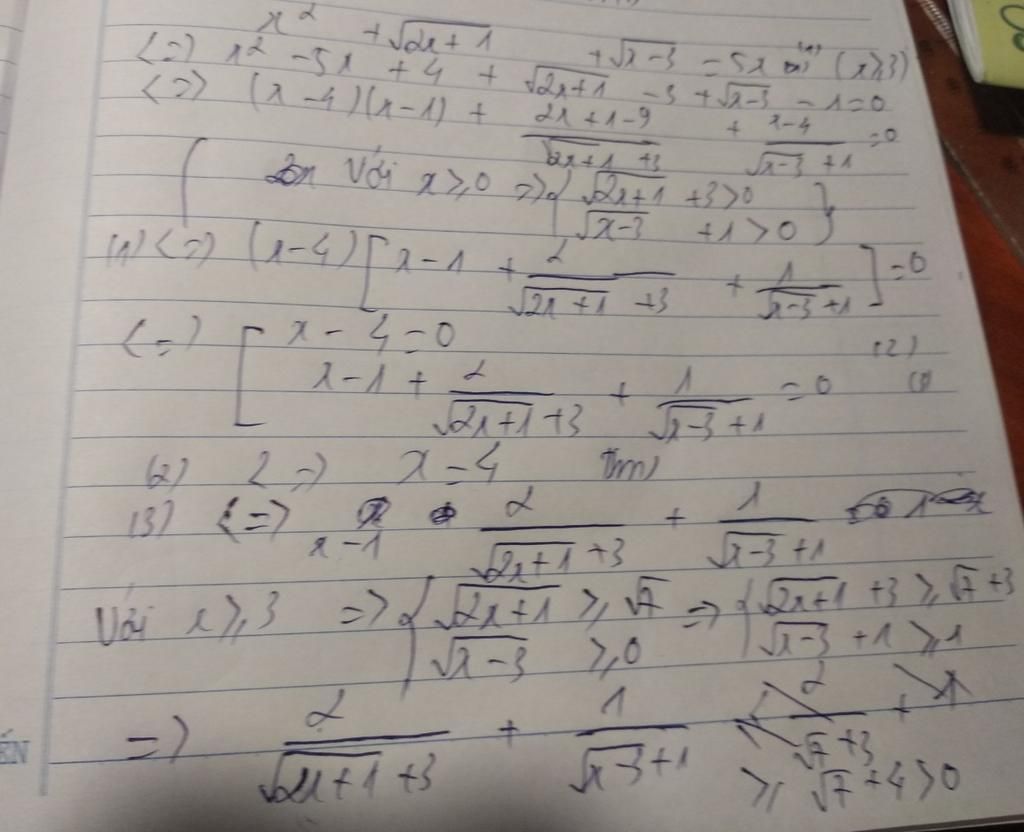 x² + √(2x+1) + √(x-3) = 5x (x≥3)
<=> x² - 5x + 4 + √(2x+1) - 3 + √(x-3) - 1 = 0
<=> (x-4)(x-1) + (2x+1-9)/(√(2x+1) + 3) + (x-4)/(√(x-3) + 1) = 0
Với x ≥ 0 => { √(2x+1) + 3 > 0
√(x-3) + 1 > 0 }
(1) <=> (x-4)[x-1 + 2/(√(2x+1) + 3) + 1/(√(x-3) + 1)] = 0
<=> [ x - 4 = 0 (2)
x - 1 + 2/(√(2x+1) + 3) + 1/(√(x-3) + 1) = 0
(2) => x = 4 (tm)
(3) <=> x - 1 2/(√(2x+1) + 3) + 1/(√(x-3) + 1)
Với x ≥ 3 => { √(2x+1) ≥ √7 => { √(2x+1) + 3 ≥ √7 + 3
√(x-3) ≥ 0 √(x-3) + 1 ≥ 1
=> 2/(√(2x+1) + 3) + 1/(√(x-3) + 1) 2/(√7 + 3) + 1
≥ √7 + 4 > 0
ẾN